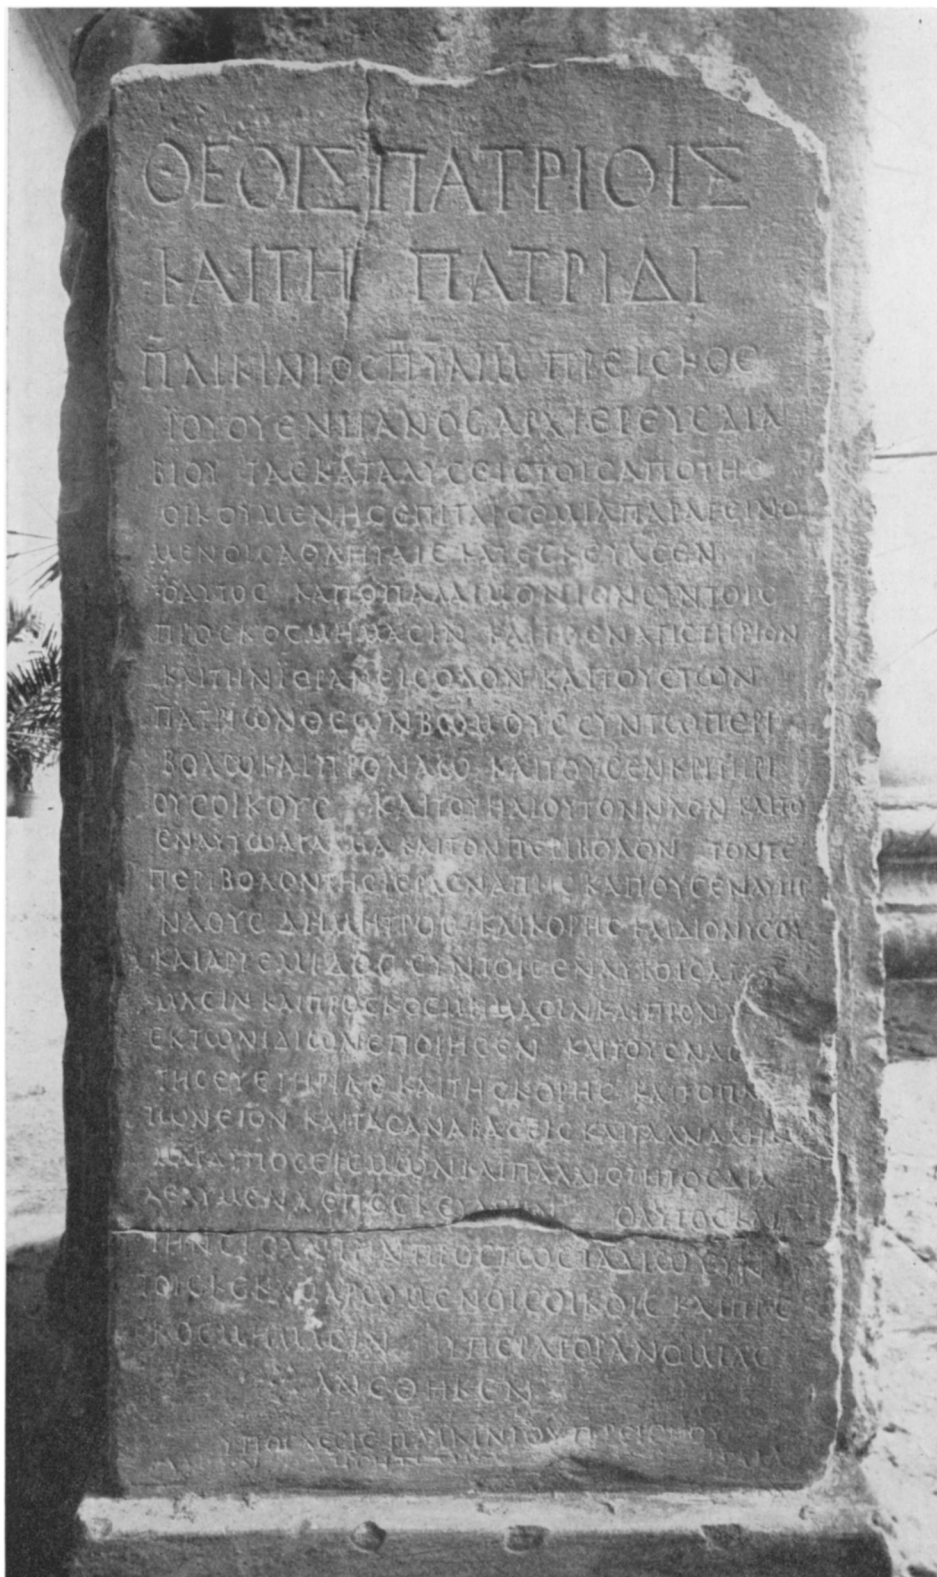 ΘΕΟΙΣΠΑΤΡΙΟΙΣ
ΚΑΙΤΗ ΠΑΤΡΙΔΙ
ΠΛΙΚΙΝΙΟϹΠΥΑΙΜ ΠΡΕΙϹΚΟϹ
ΙΟΥΟΥΕΝΤΙΑΝΟϹΑΡΧΙΕΡΕΥϹΔΙΑ
ΒΙΟΥ ΤΑϹΚΑΤΑΛΥϹΕΙϹΤΟΙϹΑΠΟΤΗϹ
ΟΙΚΟΥΜΕΝΗϹΕΠΙΤΑΙϹΘΜΙΑΠΑΡΑΓΕΙΝΟ
ΜΕΝΟΙϹΑΘΛΗΤΑΙϹ ΚΑΤΕϹΚΕΥΑϹΕΝ
ΟΑΥΤΟϹ ΚΑΙΤΟΠΑΛΑΙΜΟΝΙΟΝϹΥΝΤΟΙϹ
ΠΡΟϹΚΟϹΜΗΜΑϹΙΝ ΚΑΙΤΟΕΝΑΓΙϹΤΗΡΙΟΝ
ΚΑΙΤΗΝΙΕΡΑΝΕΙϹΟΔΟΝ ΚΑΙΤΟΥϹΤΩΝ
ΠΑΤΡΙΩΝΘΕΩΝΒΩΜΟΥϹ ϹΥΝΤΩΠΕΡΙ
ΒΟΛΩΚΑΙΠΡΟΝΑΩ ΚΑΙΤΟΥϹΕΝΚΡΙΤΗΡΙ
ΟΥϹΟΙΚΟΥϹ ΚΑΙΤΟΥΗΛΙΟΥΤΟΝΝΑΟΝ ΚΑΙΤΟ
ΕΝΑΥΤΩΑΓΑΛΜΑ ΚΑΙΤΟΝΠΕΡΙΒΟΛΟΝ ΤΟΝΤΕ
ΠΕΡΙΒΟΛΟΝΤΗϹΙΕΡΑϹΝΑΠΗϹ ΚΑΙΤΟΥϹΕΝΑΥΤΗ
ΝΑΟΥϹ ΔΗΜΗΤΡΟϹ ΚΑΙΚΟΡΗϹ ΚΑΙΔΙΟΝΥϹΟΥ
ΚΑΙΑΡΤΕΜΙΔΟϹ ϹΥΝΤΟΙϹΕΝΑΥΤΟΙϹΑΓΑΛ
ΜΑϹΙΝ ΚΑΙΠΡΟϹΚΟϹΜΗΜΑϹΙΝ ΚΑΙΠΡΟΝΑ
ΕΚΤΩΝΙΔΙΩΝΕΠΟΙΗϹΕΝ ΚΑΙΤΟΥϹΝΑΟ
ΤΗϹΕΥΕΤΗΡΙΑϹ ΚΑΙΤΗϹΚΟΡΗϹ ΚΑΙΤΟΠΛΟΥ
ΤΩΝΕΙΟΝ ΚΑΙΤΑϹΑΝΑΒΑϹΕΙϹ ΚΑΙΤΑΑΝΑΛΗΜ
ΥΠΟϹΕΙϹΜΩΝΚΑΙΠΑΛΑΙΟΤΗΤΟϹΔΙΑ
ΛΕΛΥΜΕΝΑΕΠΕϹΚΕΥΑϹΕΝ ΟΑΥΤΟϹΚΑΙ
ΤΗΝϹΤΟΑΝΤΗΝΠΡΟϹΤΩϹΤΑΔΙΩϹΥΝ
ΤΟΙϹΚΕΚΑΜΑΡΩΜΕΝΟΙϹΟΙΚΟΙϹ ΚΑΙΠΡΟϹ
ΚΟϹΜΗΜΑϹΙΝ ΥΠΕΡΑΓΟΡΑΝΟΜΙΑϹ
ΑΝΕΘΗΚΕΝ